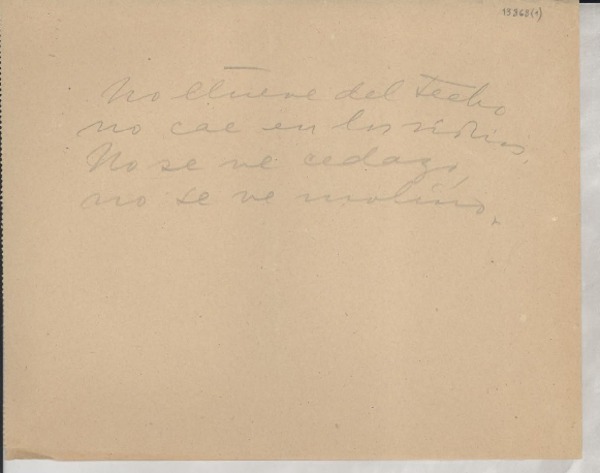 13868(1)
No llueve del techo
no cae en los vidrios.
No se ve cedazo,
no se ve molino.